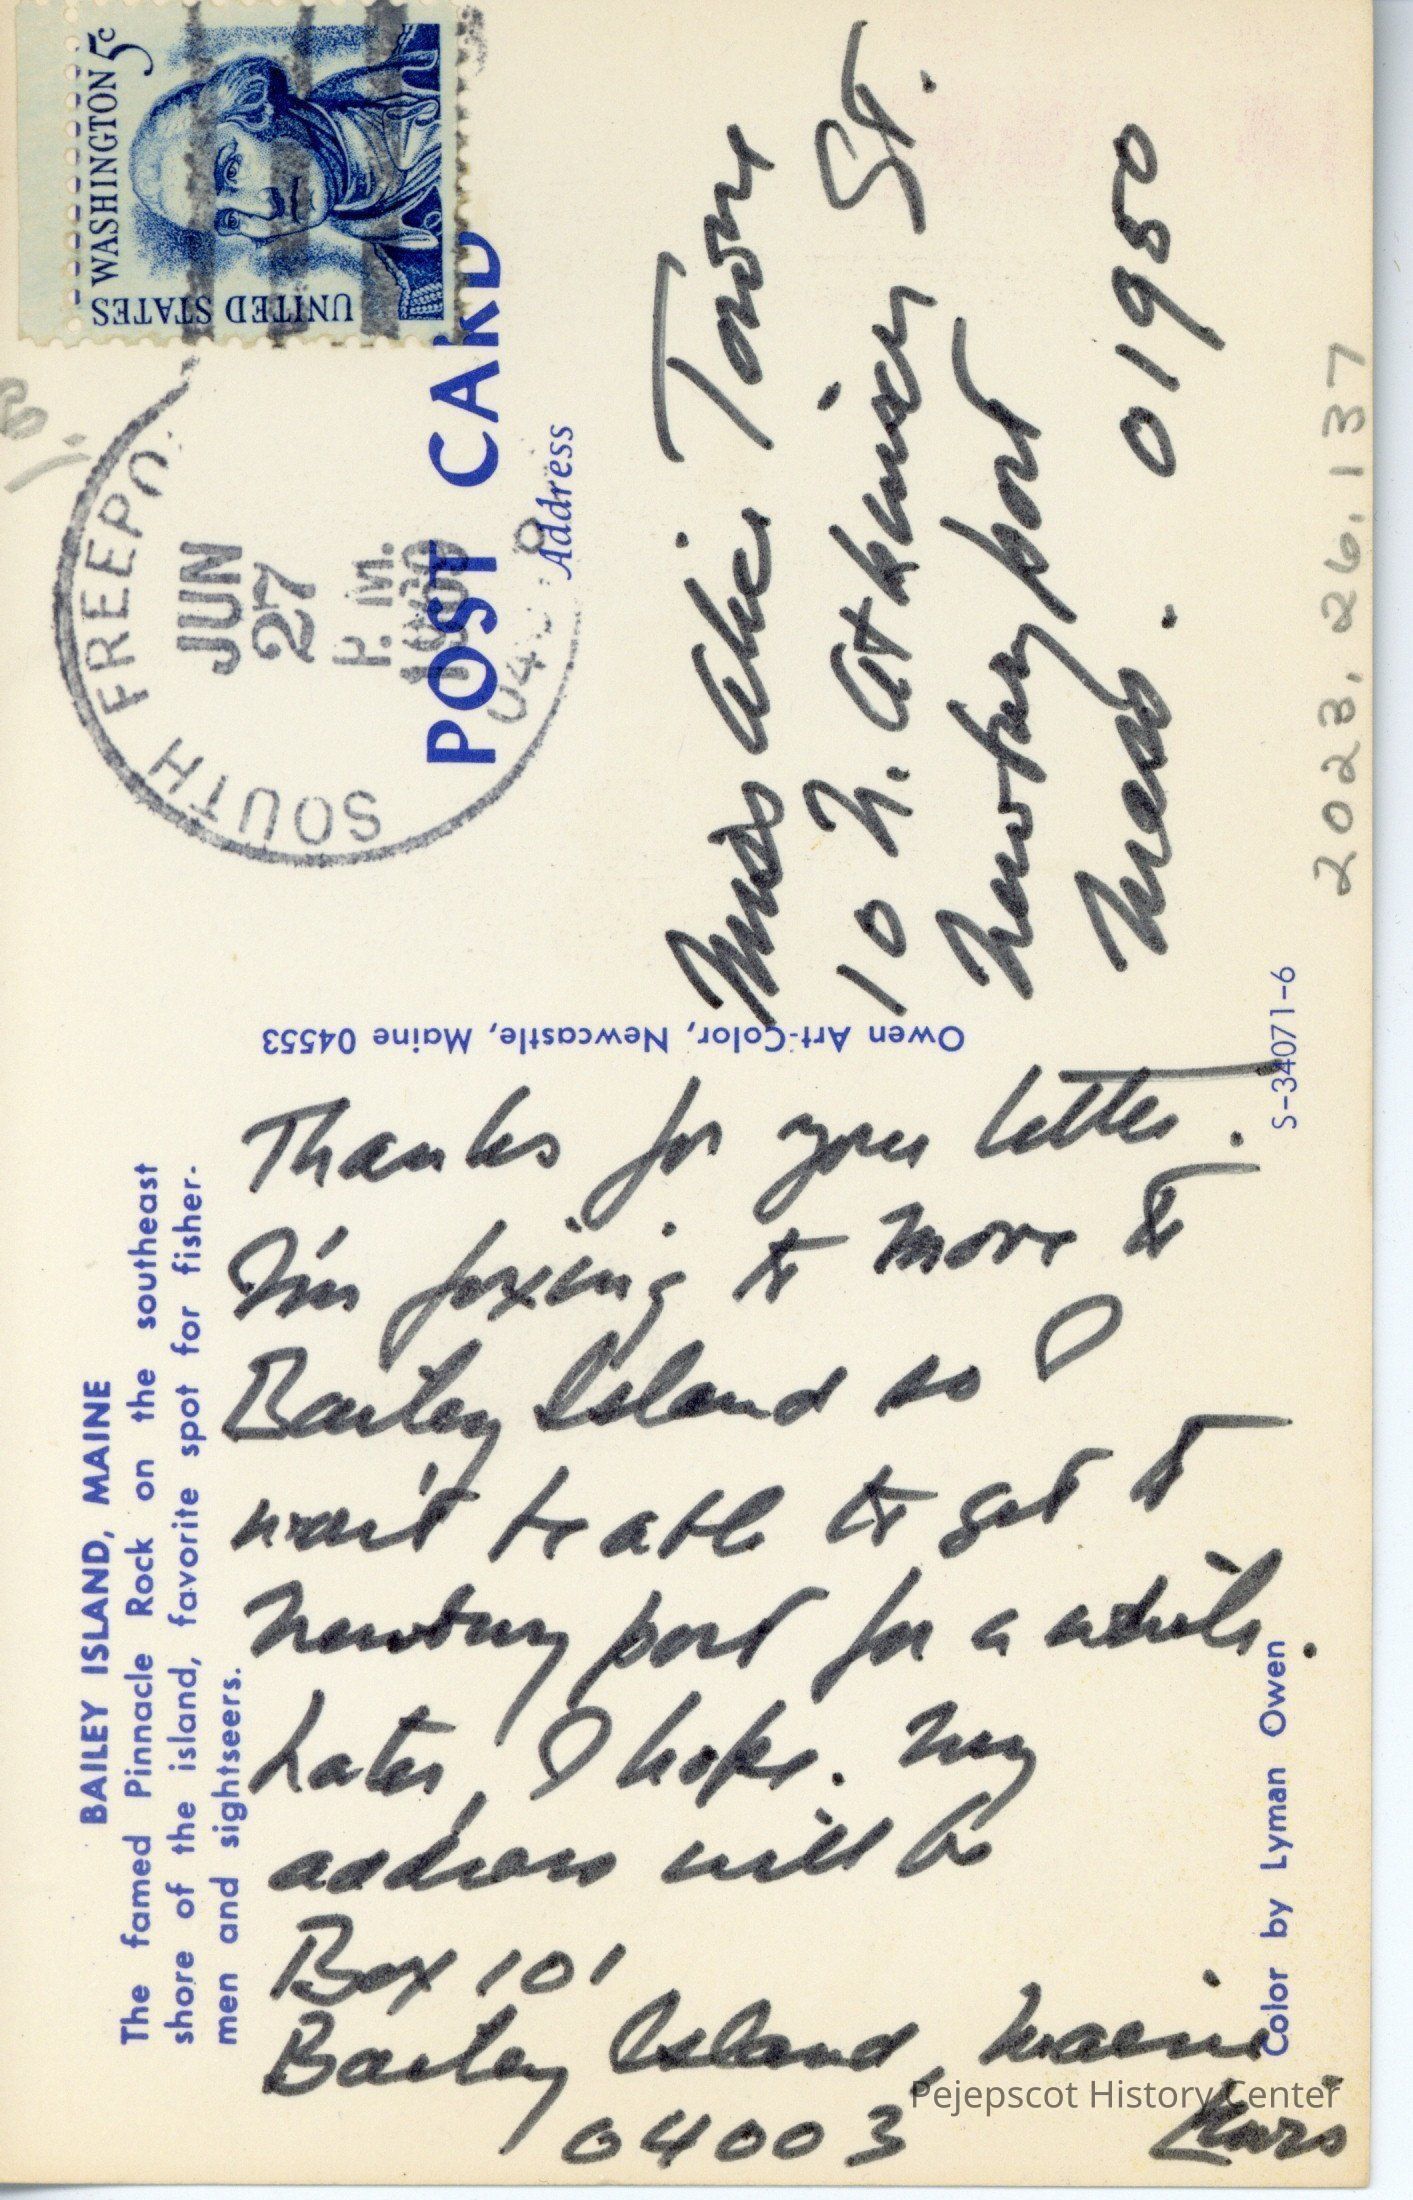 BAILEY ISLAND, MAINE
The famed Pinnacle Rock on the southeast
shore of the island, favorite spot for fisher-
men and sightseers.
Thanks for your letter.
I'm fixing to move to
Bailey Island so I
won't be able to get to
Newburyport for a while.
Later, I hope. My
address will be
Box 101
Bailey Island, Maine
04003
Color by Lyman Owen
Owen Art-Color, Newcastle, Maine 04553
S-34071-6
POST CARD
Address
SOUTH FREEPO
JUN
27
P.M.
UNITED STATES
WASHINGTON 5c
Miss Alice Towne
10 N. Atkinson St.
Newburyport
Mass. 01950
2023.26.137
Pejepscot History Center